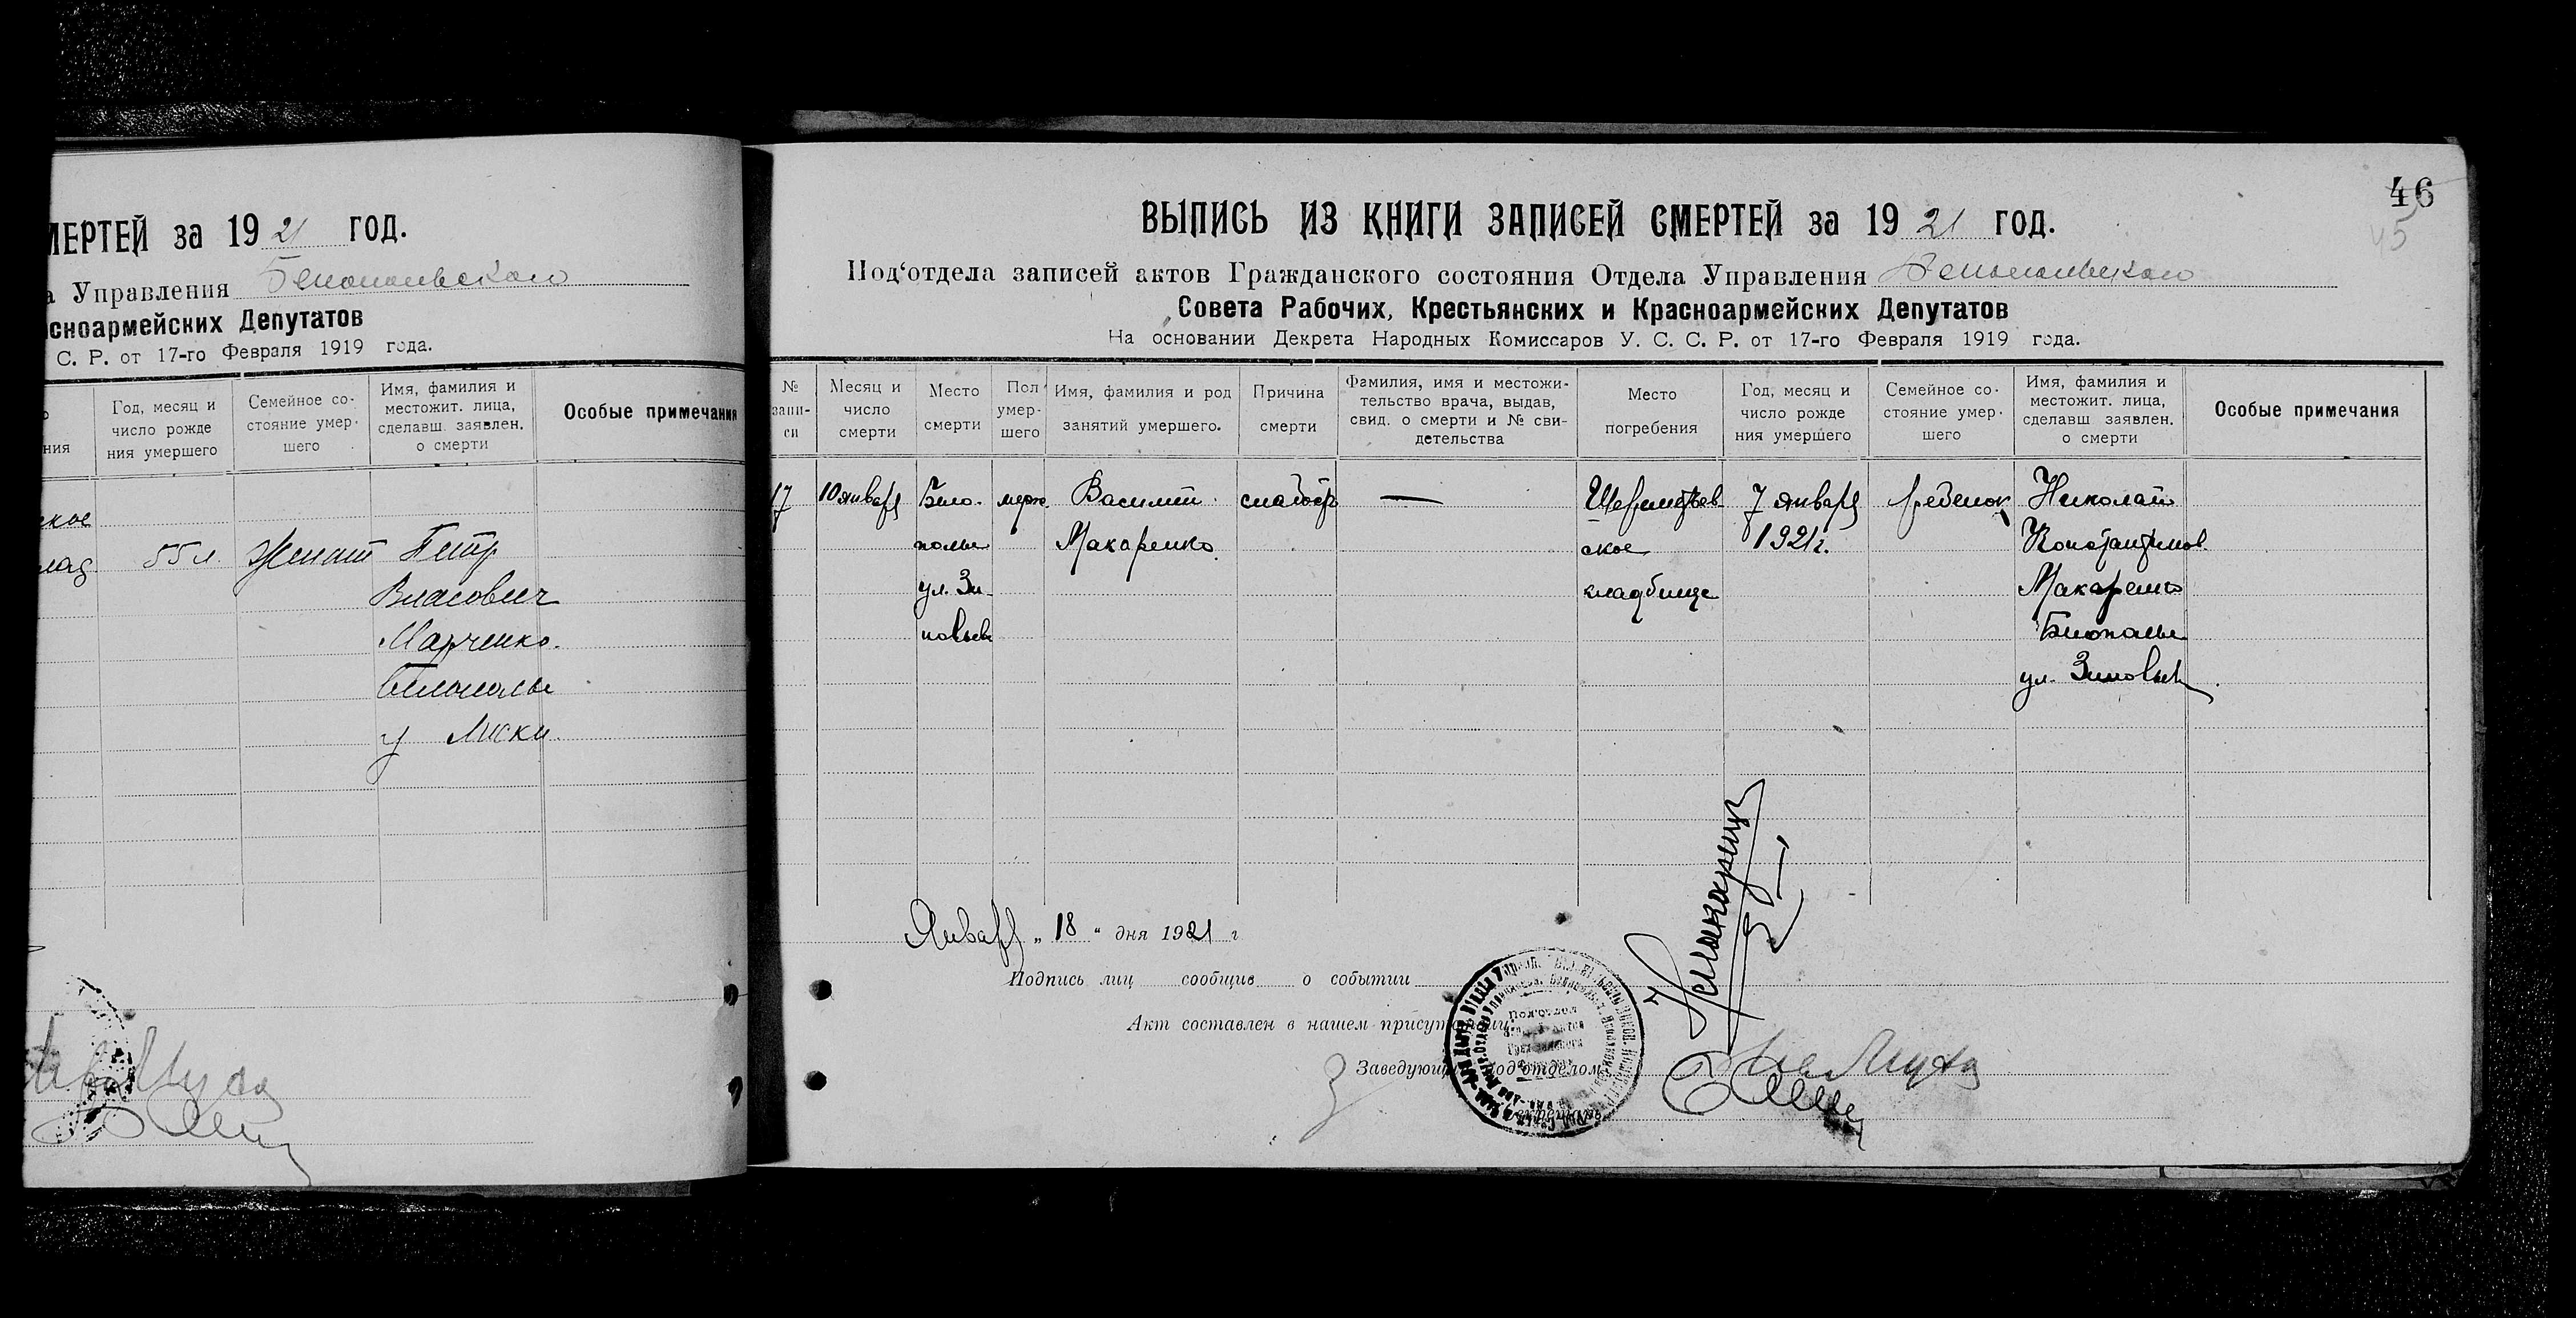 МЕРТЕЙ за 1921 год.
а Управления Белопольского
сноармейских Депутатов
С. Р. от 17-го Февраля 1919 года.
ния
Год, месяц и
число рожде
ния умершего
Семейное со-
стояние умер-
шего
Имя, фамилия и
местожит. лица,
сделавш. заявлен.
о смерти
Особые примечания
ское
клад.
55 л.
женат
Петр
Власович
Марченко.
Белополье
у Лиски
46
45
ВЫПИСЬ ИЗ КНИГИ ЗАПИСЕЙ СМЕРТЕЙ за 1921 год.
Под'отдела записей актов Гражданского состояния Отдела Управления Белопольского
Совета Рабочих, Крестьянских и Красноармейских Депутатов
На основании Декрета Народных Комиссаров У. С. С. Р. от 17-го Февраля 1919 года.
№
запи-
си
Месяц и
число
смерти
Место
смерти
Пол
умер-
шего
Имя, фамилия и род
занятий умершего.
Причина
смерти
Фамилия, имя и местожи-
тельство врача, выдав,
свид. о смерти и № сви-
детельства
Место
погребения
Год, месяц и
число рожде
ния умершего
Семейное со-
стояние умер-
шего
Имя, фамилия и
местожит. лица,
сделавш заявлен.
о смерти
Особые примечания
17
10 января
Бело-
полье
ул. Зи-
новьева
муж.
Василий
Макаренко.
слабость
—
Шереметьев
ское
кладбище
7 января
1921 г.
ребенок
Николай
Константинов.
Макаренко
Белополье
ул. Зиновьев
Января „ 18 “ дня 1921 г
Подпись лиц сообщив о событии
Акт составлен в нашем присутствии:
Заведующий под'отделом
Секретарь